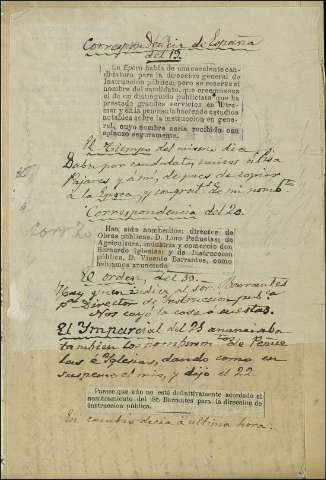 Correspondencia de España
del 19.
La Epoca habla de una excelente can-
didatura para la direccion general de
Instruccion pública, pero se reserva el
nombre del candidato, que creemos sea
el de un distinguido publicista que ha
prestado grandes servicios en Ultra-
mar y en la península haciendo estudios
notables sobre la instruccion en gene-
ral, cuyo nombre seria recibido con
aplauso seguramente.
El Tiempo del mismo dia
Daba por candidatos únicos a
Pajares y á mi, despues de copiar
á la Epoca, y
Correspondencia del 20.
Han sido nombrados: director de
Obras públicas, D. Lino Peñuelas; de
Agricultura, industria y comercio don
Bernardo Iglesias; y de Instruccion
pública, D. Vicente Barrantes, como
habiamos anunciado.
El orden, del 30.
Hay quien indica al sor. Barrantes
pa. Director de Instruccion pub.a
Nos cayó la casa á cuestas.
El Imparcial del 21 anunciaba
tambien los nombram.tos de Peñue
las é Iglesias, dando como en
suspenso el mio, y dijo el 22
Parece que aún no está definitivamente acordado el
nombramiento del Sr. Barrantes para la direccion de
Instruccion pública.
En cambio decia á última hora: